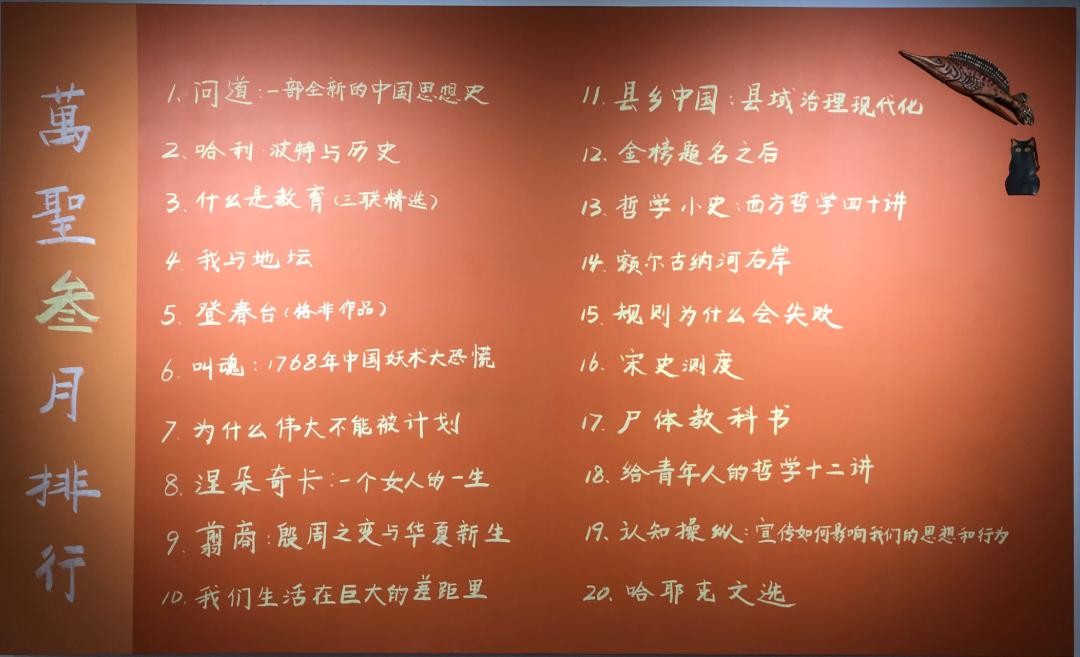 萬聖叁月排行
1. 问道:一部全新的中国思想史
2. 哈利·波特与历史
3. 什么是教育(三联精选)
4. 我与地坛
5. 登春台(格非作品)
6. 叫魂:1768年中国妖术大恐慌
7. 为什么伟大不能被计划
8. 涅朵奇卡:一个女人的一生
9. 翦商:殷周之变与华夏新生
10. 我们生活在巨大的差距里
11. 县乡中国:县域治理现代化
12. 金榜题名之后
13. 哲学小史:西方哲学四十讲
14. 额尔古纳河右岸
15. 规则为什么会失败
16. 宋史测度
17. 尸体教科书
18. 给青年人的哲学十二讲
19. 认知操纵:宣传如何影响我们的思想和行为
20. 哈耶克文选